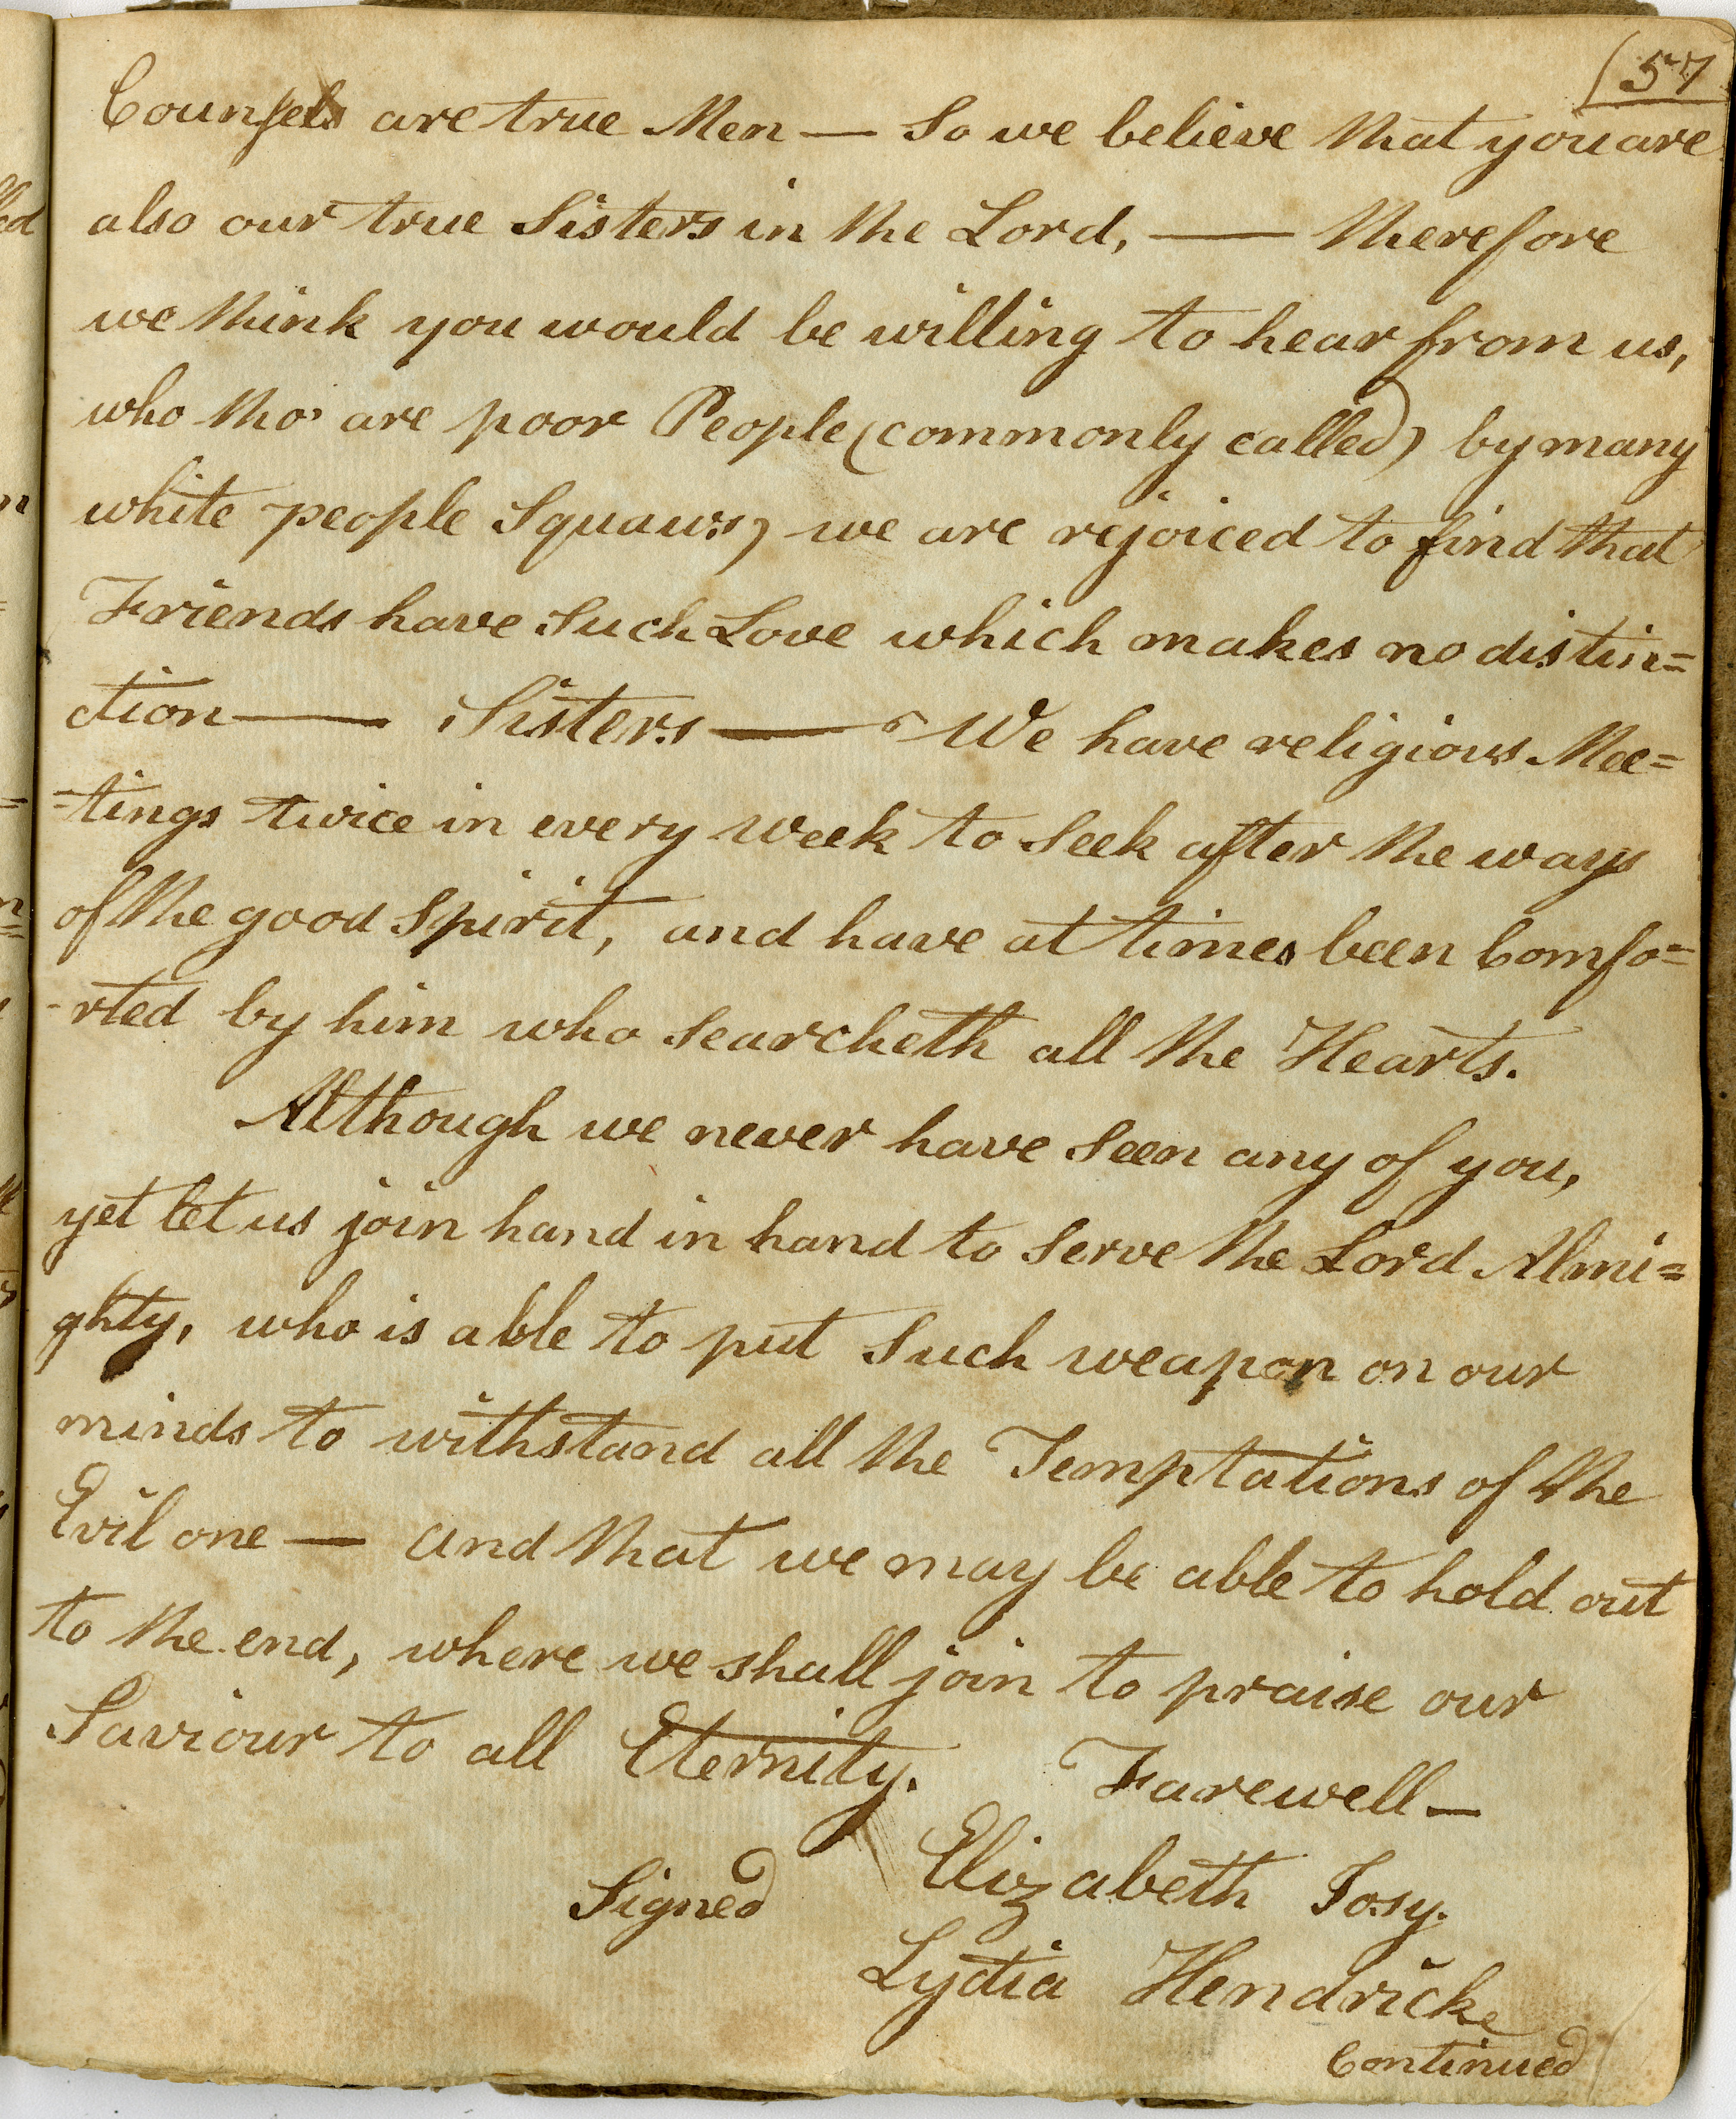 (57
Counsels are true Men — So we believe that you are
also our true Sisters in the Lord, — therefore
we think you would be willing to hear from us,
who tho' are poor People (commonly called) by many
white people Squaws) we are rejoiced to find that
Friends have Such Love which makes no distin=
ction — Sisters — We have religious Mee=
=tings twice in every week to Seek after the ways
of the good Spirit, and have at times been Comfo=
-rted by him who Searcheth all the Hearts.
Although we never have Seen any of you,
yet let us join hand in hand to Serve the Lord Almi=
ghty, who is able to put Such weapon on our
minds to withstand all the Temptations of the
Evil one — and that we may be able to hold out
to the end, where we shall join to praise our
Saviour to all Eternity. Farewell —
Signed Elizabeth Josy.
Lydia Hendrick
Continued